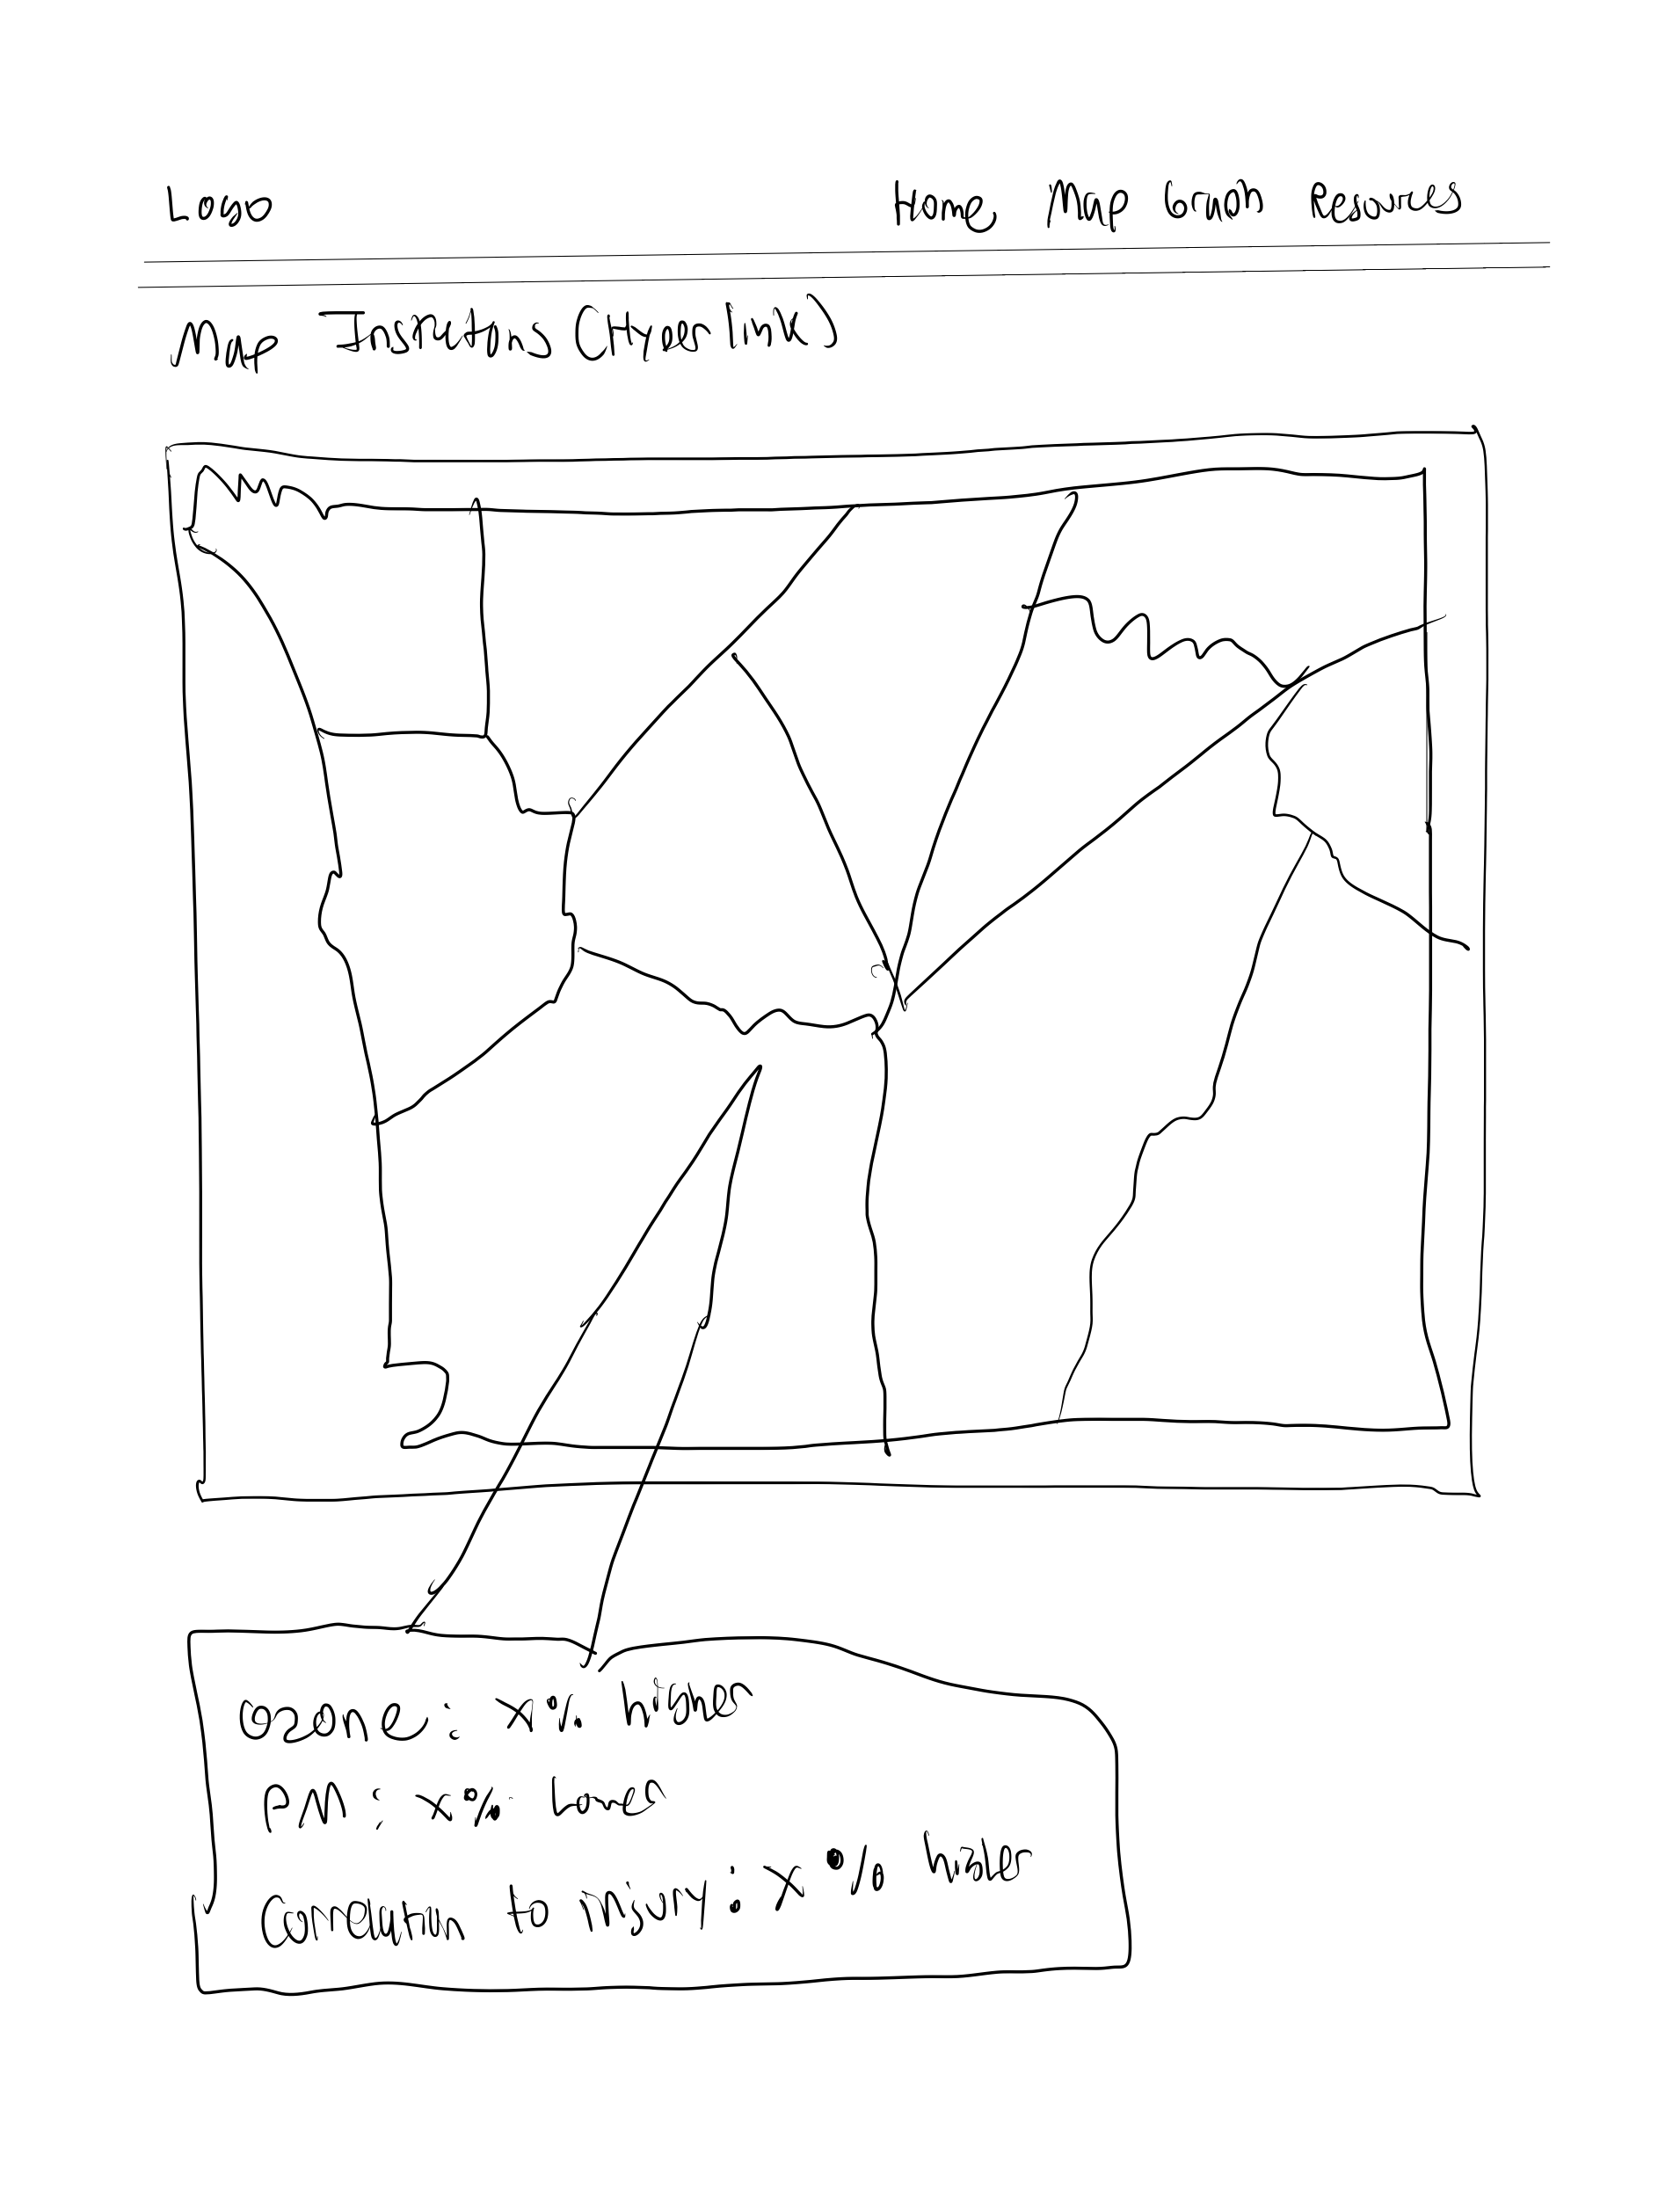 Logo Home Map Graph Resources
Map Instructions (Hyperlink)
Ozone: X% higher
PM: X% lower
Correlation to injury: X% higher